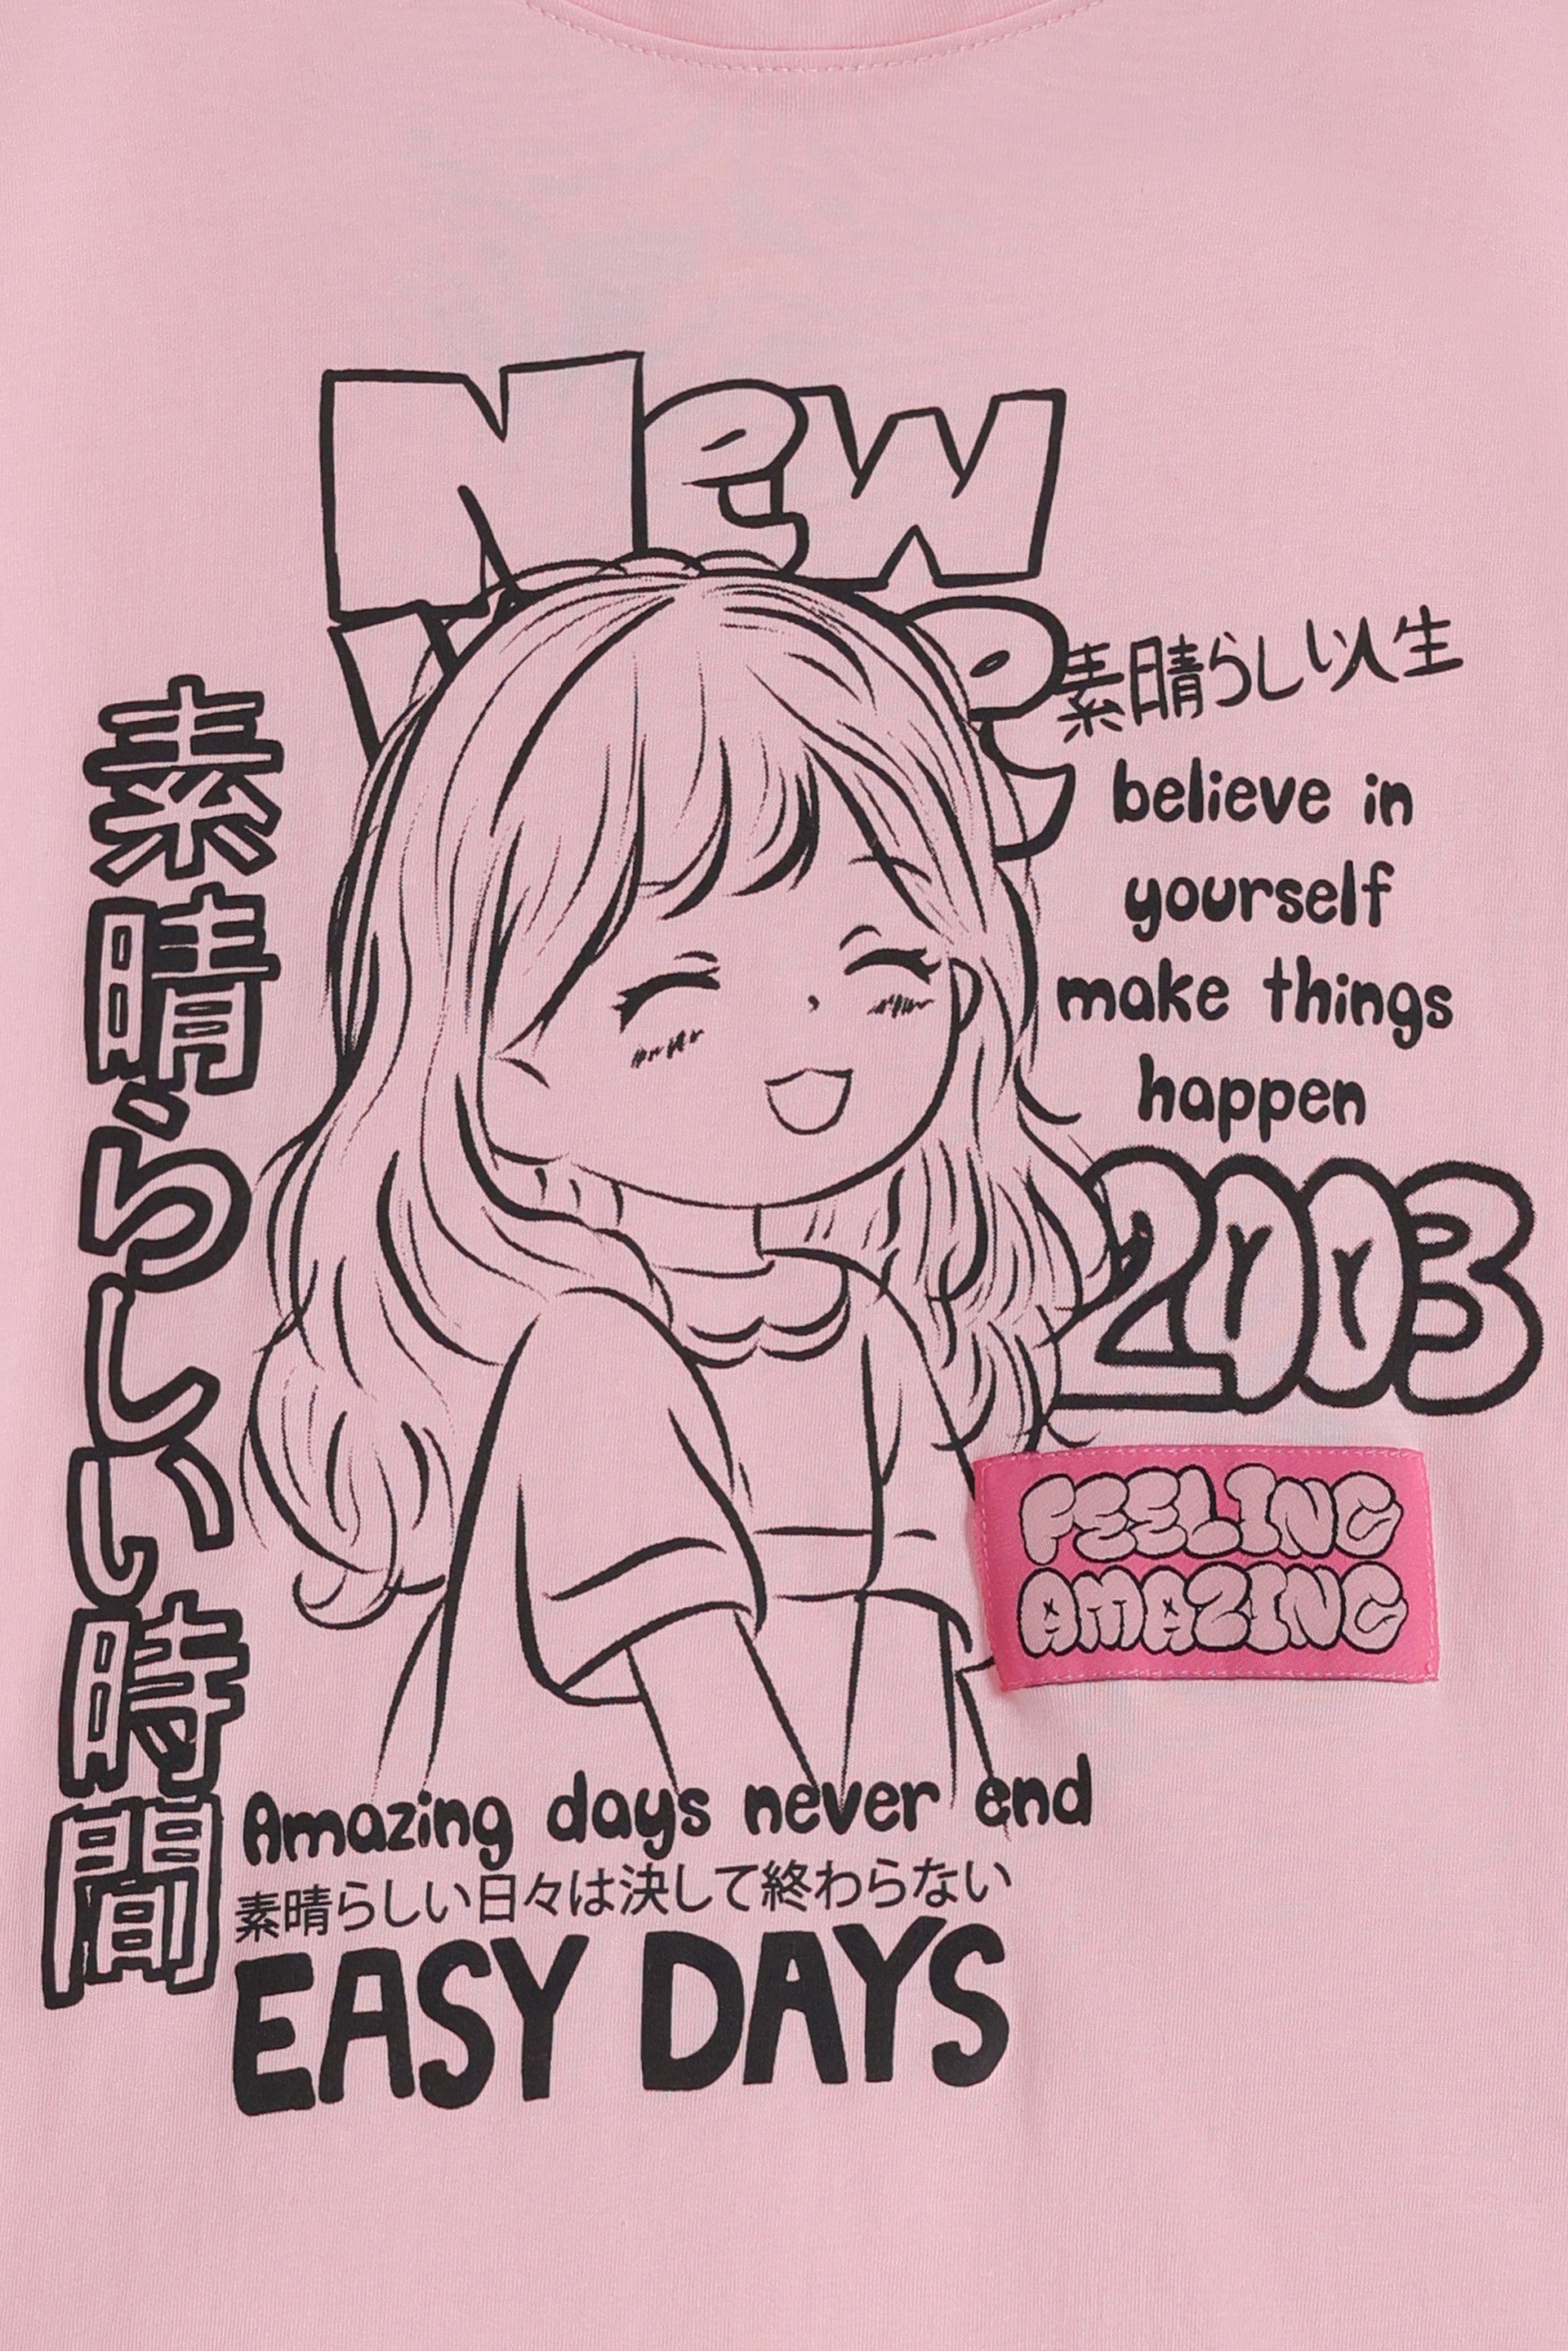 New
素晴らしい人生
believe in
yourself
make things
happen
2003
素晴らしい時間
FEELING
AMAZING
Amazing days never end
素晴らしい日々は決して終わらない
EASY DAYS